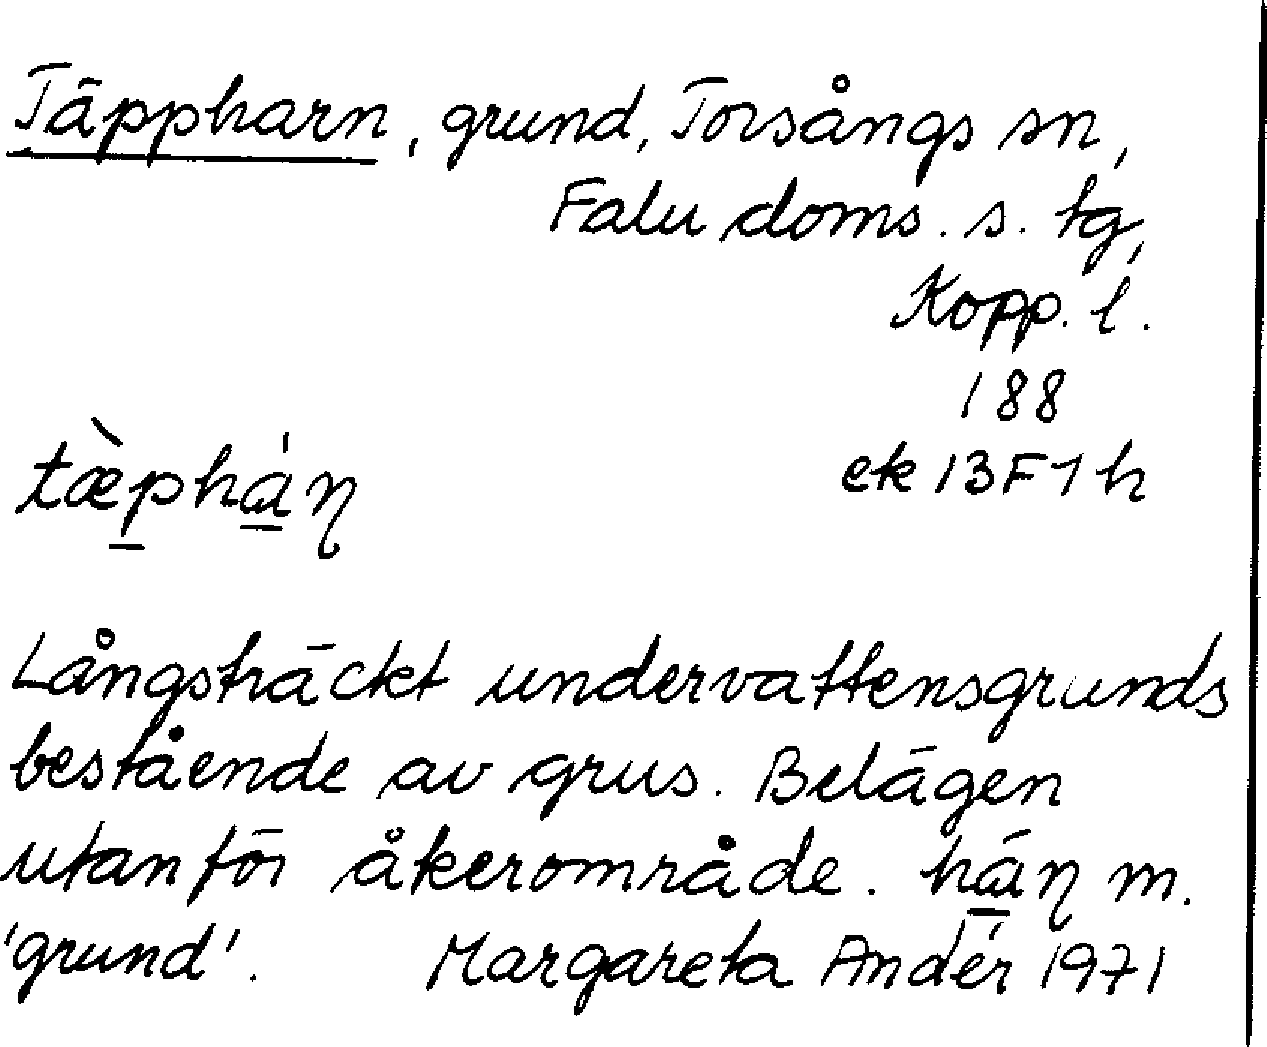 Täppharn, grund, Torsångs sn,
Falu doms. s. tg,
Kopp. l.
188
tæ̀p̲há̲ɳ
ek 13F7h
Långsträckt undervattensgrunds
bestående av grus. Belägen
utanför åkerområde. há̲ɳ m.
'grund'. Margareta Andér 1971